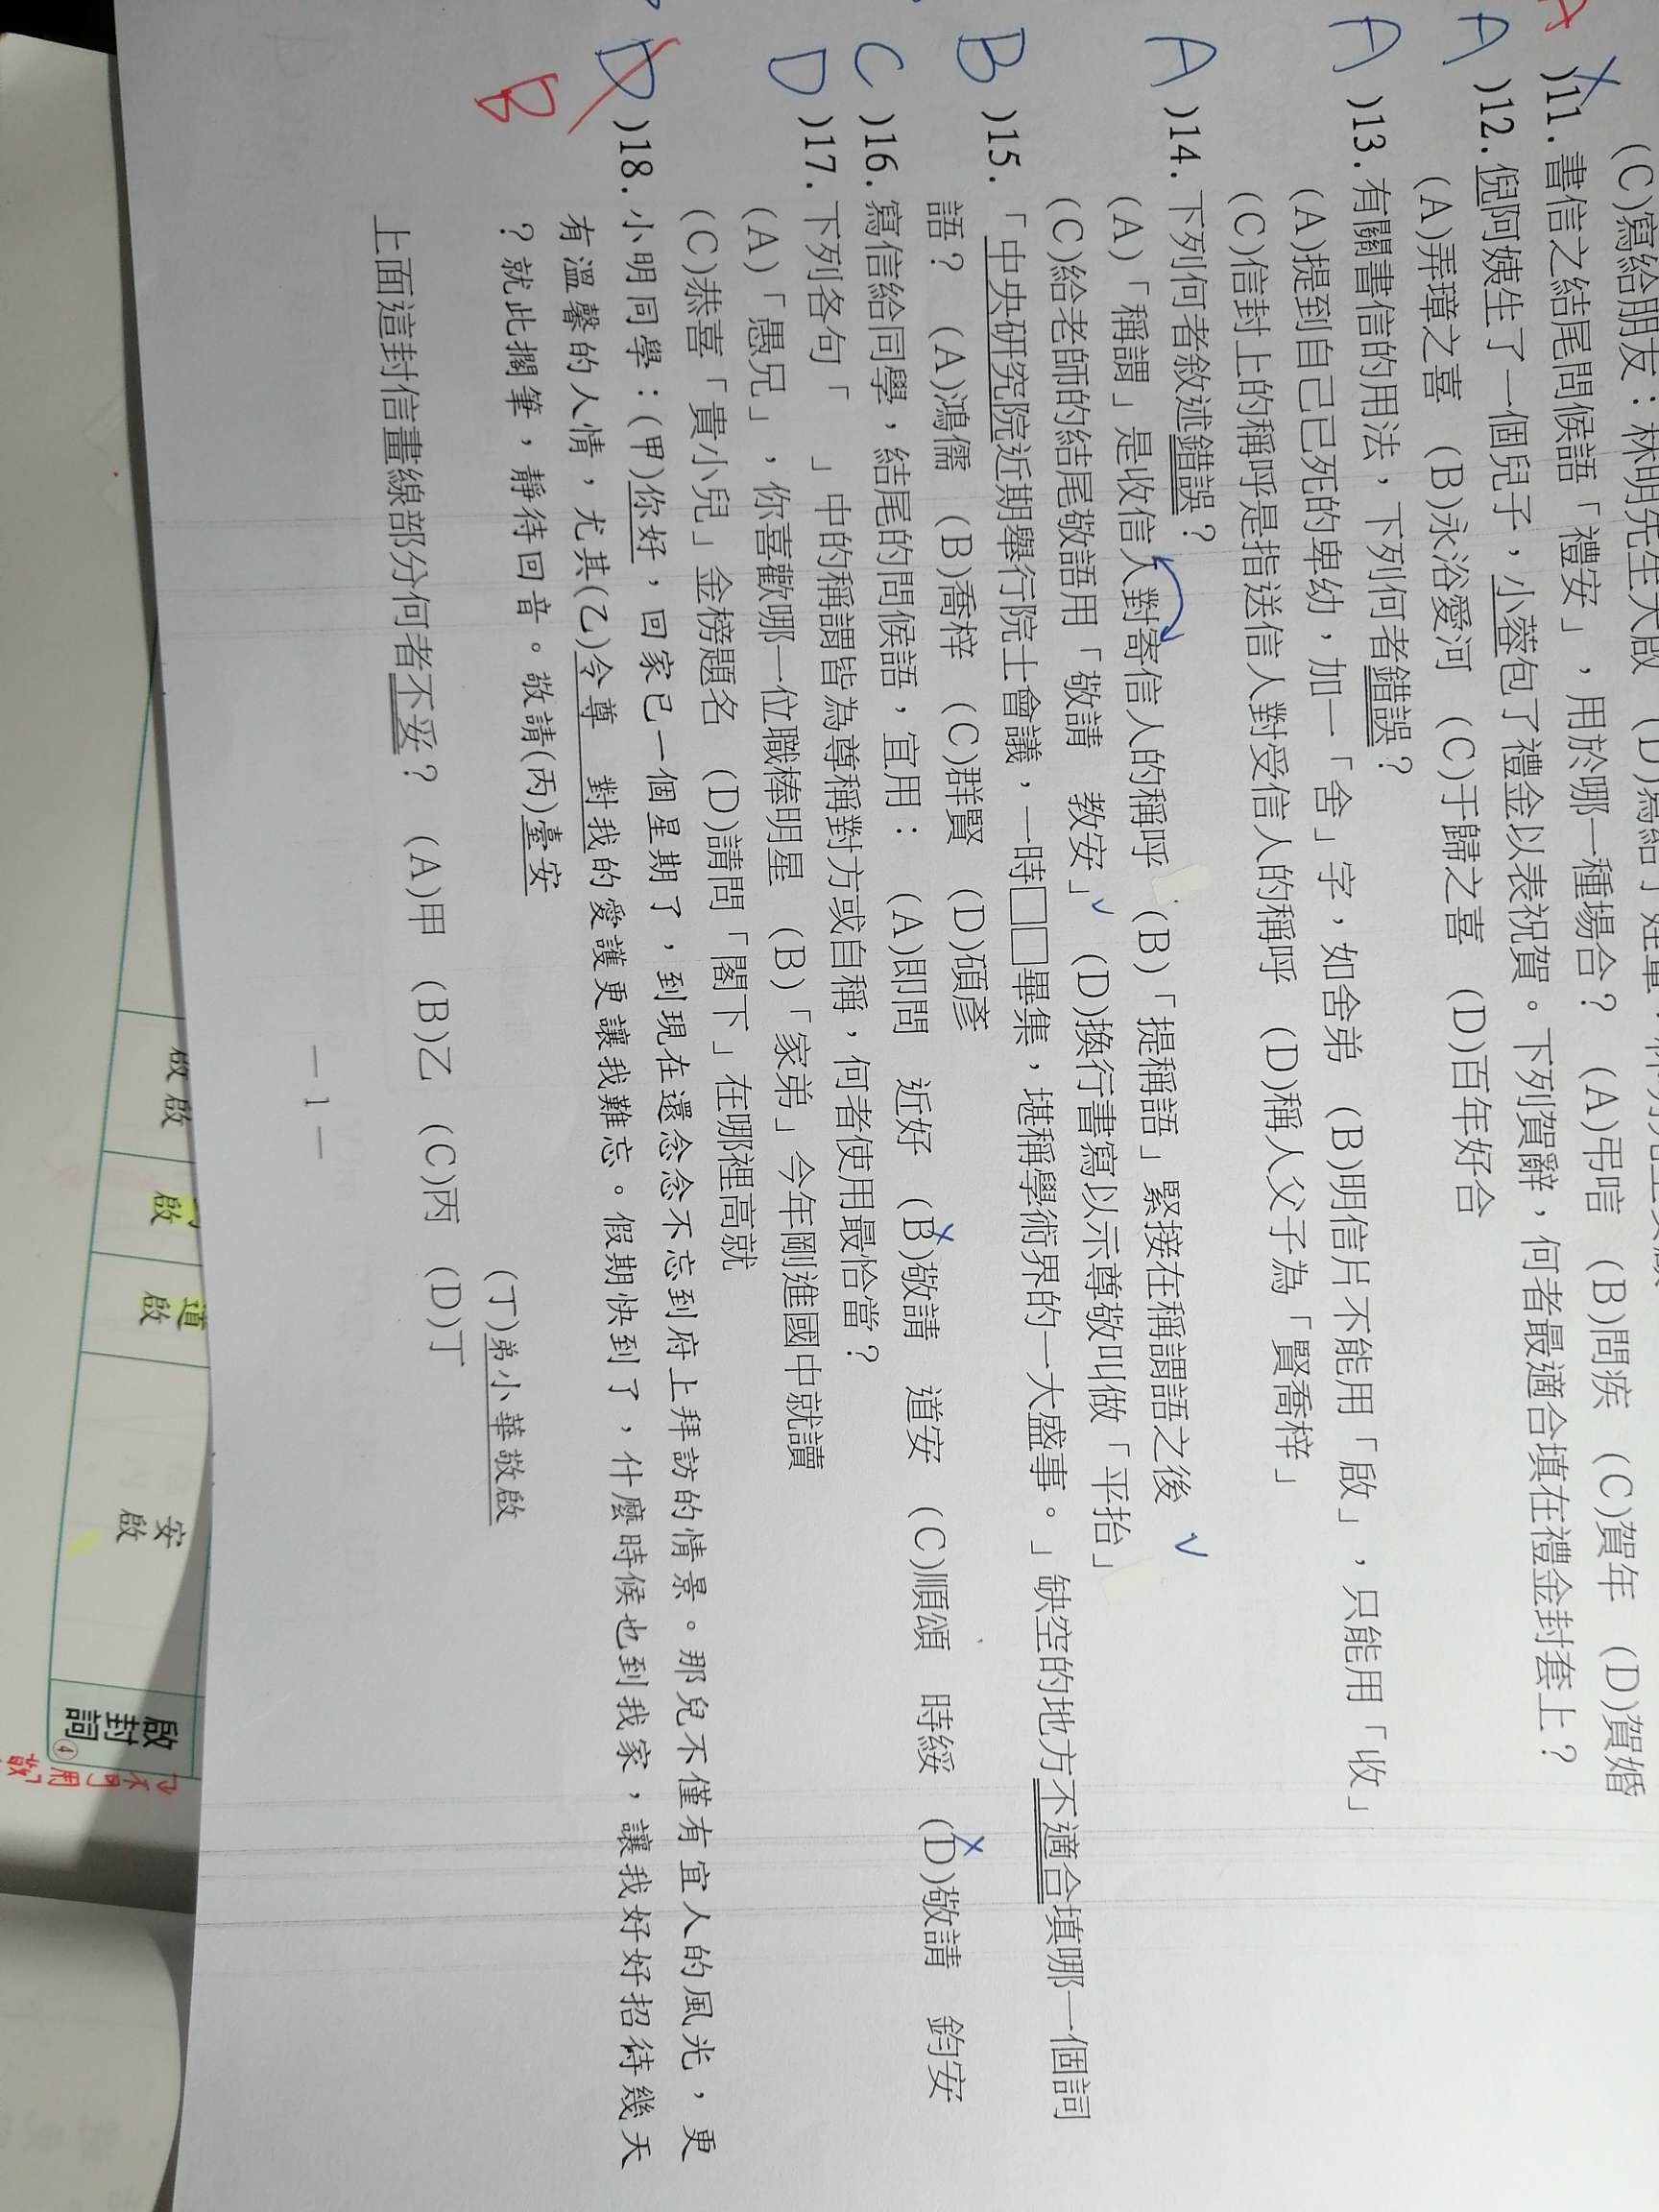 (C)寫給朋友：林明先生大啟
A
X )11.書信之結尾問候語「禮安」，用於哪一種場合？ (A)弔唁 (B)問疾 (C)賀年 (D)賀婚
A )12.倪阿姨生了一個兒子，小蓉包了禮金以表祝賀。下列賀辭，何者最適合填在禮金封套上？
(A)弄璋之喜 (B)永浴愛河 (C)于歸之喜 (D)百年好合
A )13.有關書信的用法，下列何者錯誤？
(A)提到自己已死的卑幼，加一「舍」字，如舍弟 (B)明信片不能用「啟」，只能用「收」
(C)信封上的稱呼是指送信人對受信人的稱呼 (D)稱人父子為「賢喬梓」
A )14.下列何者敘述錯誤？
(A)「稱謂」是收信人對寄信人的稱呼 (B)「提稱語」緊接在稱謂語之後
(C)給老師的結尾敬語用「敬請 教安」 (D)換行書寫以示尊敬叫做「平抬」
B )15.「中央研究院近期舉行院士會議，一時□□畢集，堪稱學術界的一大盛事。」缺空的地方不適合填哪一個詞
語？ (A)鴻儒 (B)喬梓 (C)群賢 (D)碩彥
C )16.寫信給同學，結尾的問候語，宜用： (A)即問 近好 (B)敬請 道安 (C)順頌 時綏 (D)敬請 鈞安
D )17.下列各句「 」中的稱謂皆為尊稱對方或自稱，何者使用最恰當？
(A)「愚兄」，你喜歡哪一位職棒明星 (B)「家弟」今年剛進國中就讀
(C)恭喜「貴小兒」金榜題名 (D)請問「閣下」在哪裡高就
D )18.小明同學：(甲)你好，回家已一個星期了，到現在還念念不忘到府上拜訪的情景。那兒不僅有宜人的風光，更
B
有溫馨的人情，尤其(乙)令尊 對我的愛護更讓我難忘。假期快到了，什麼時候也到我家，讓我好好招待幾天
？就此擱筆，靜待回音。敬請(丙)臺安
(丁)弟小華敬啟
上面這封信畫線部分何者不妥？ (A)甲 (B)乙 (C)丙 (D)丁
— 1 —
啟封詞④
安啟
道啟
啟
啟